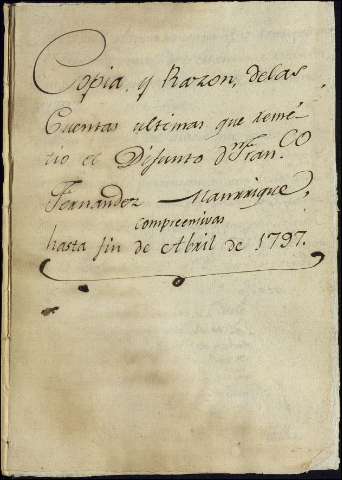 Copia, y Razon, de las
Cuentas ultimas que remé-
tio el Difunto Dn. Fran.co
Fernandez Manrrique,
compreensivas
hasta fin de Abril de 1797.